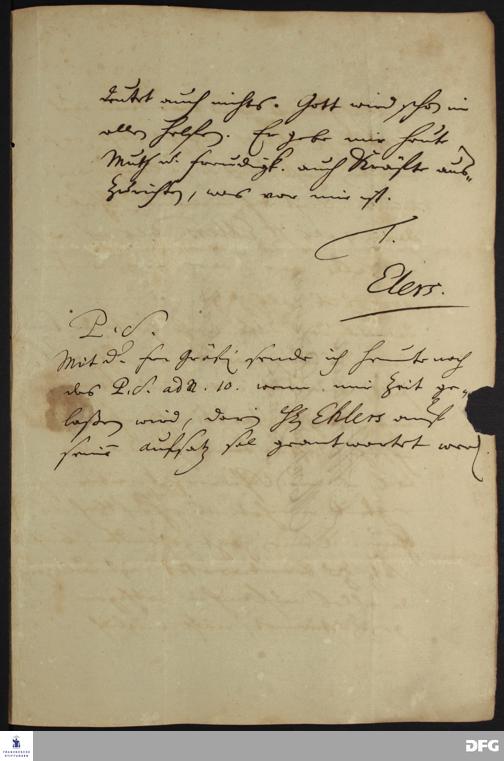 deutet auch nichts. Gott wird schon in
allem helfen. Er gebe mir heute
Muth u. freudigk. auch Kräfte aus-
zurichten, was vor mir ist.
T.
Elers.
P. S.
Mit d. Gräfin sende ich heute noch
das P. S. ad N. 10. wenn mir Zeit ge-
laßen wird, darin H. Ehlers auf
seinen aufsatz sol geantwortet werd.
FRANCKESCHE
STIFTUNGEN
DFG